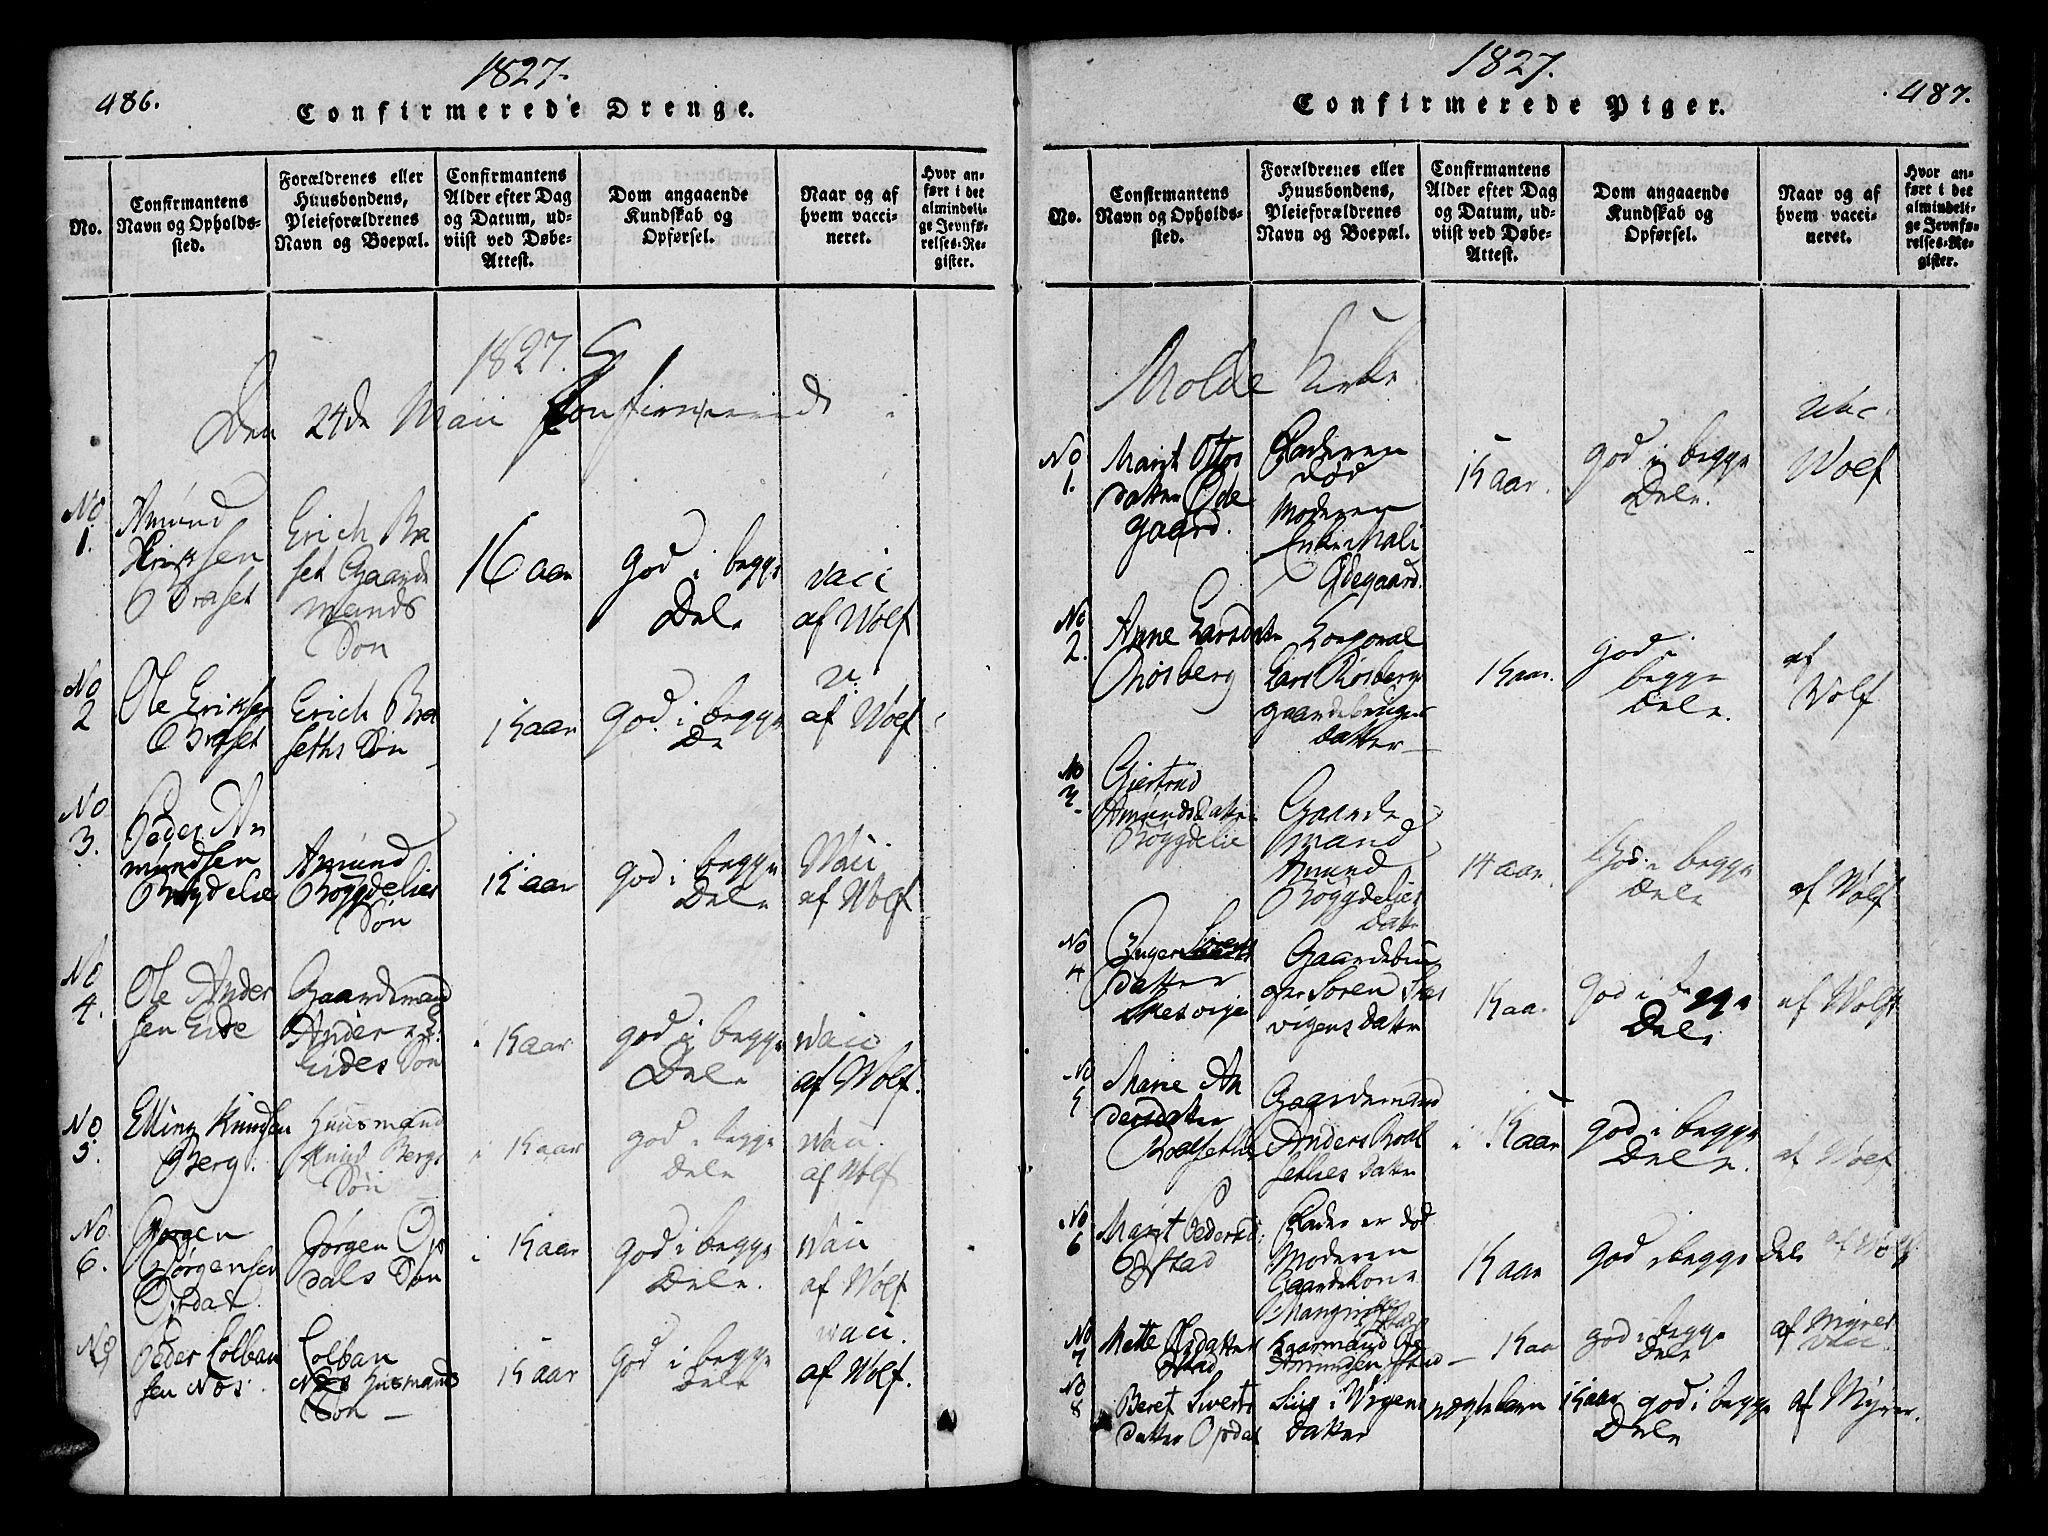 486.
1827.
Confirmerede Drenge.
No.
Confirmantens
Navn og Opholds-
sted.
Forældrenes eller
Huusbondens,
Pleieforældrenes
Navn og Boepæl.
Confirmantens
Alder efter Dag
og Datum, ud-
viist ved Døbe-
Attest.
Dom angaaende
Kundskab og
Opførsel.
Naar og af
hvem vacci-
neret.
Hvor an-
ført i det
almindeli-
ge Jevnfø-
relses-Re-
gister.
1827.
Den 24de Maii
No
1.
Amund
Braset
Erich Bra
set Gaarde
mands
Søn
16 aar
God i begge
Dele
vaci
af Wolf
No
2
Ole Eriksen
Braset
Erich Bra
seths Søn
15 aar
God i begge
De
v.
af Wolf
No
3.
Peder A
mundsen
Amund
Røygdelies
Søn
15 aar
God i begge
Dele
Waci
af Wolf
No
4.
Ole Ander
sen Eide
Gaardemand
Anders
Eides Søn
15 aar
god i begge
Dele
vaci
af Wolf.
No
5.
Elling Knudsen
Berg.
Huusmand
Knud Bergs
Søn
15 aar
god i begge
Dele
vaci.
af Wolf
No
6.
Jørgen
Jørgensen
Opdal.
Jørgen Op
dals Søn
15 aar
god i begge
Dele.
vaci
af Wolf
No
Peder Colban
sen Nos.
Colban
Husmands
Søn
15 aar
God i begge
Dele
vaci.
af Wolf.
1827.
487.
Confirmerede Piger.
No.
Confirmantens
Navn og Opholds-
sted.
Forældrenes eller
Huusbondens,
Pleieforældrenes
Navn og Boepæl.
Confirmantens
Alder efter Dag
og Datum, ud-
viist ved Døbe-
Attest.
Dom angaaende
Kundskab og
Opførsel.
Naar og af
hvem vacci-
neret.
Hvor an-
ført i det
almindeli-
ge Jevnfø-
relses-Re-
gister.
Molde Kirke.
No
1.
Marit Ottos
datter Øde
gaard.
Faderen
død
Moderen
Enke Mali
Ødegaard.
15 aar.
god i begge
Dele.
Vac.
Wolf
No
2.
Anne Larsdatter
Røsberg
Korporal
Lars Røsberg
gaardebruger
Datter
15 aar.
god i
begge
Dele.
af
Wolf
No
3
Giertrud
Amundsdatter
Røygdelie
Gaarde
mand
Amund
Røygdelies
Datter
14 aar.
God i begge
Dele
af Wolf
No
4
Inger Sørens
datter
Gaardebru
ger Søren
vigens Datter
15 aar.
God i begge
Dele
af Wolf
No
5
Marie An
dersdatter
Roalsethe
Gaardemand
Anders Roal
sethes Datter
15 aar
god i begge
Dele.
af Wolf
No
6
Marit Peders
Istad
Fader er død
Moderen
Gaardekone
15 aar
God i begge Dele
af Wolf
No
7
Mette
Istad
15 aar
god i begge
Dele
af Myren
vaci.
No
8
Beret Siverts
datter Opdal
Datter
15 aar
god i begge
Dele
af Myren.